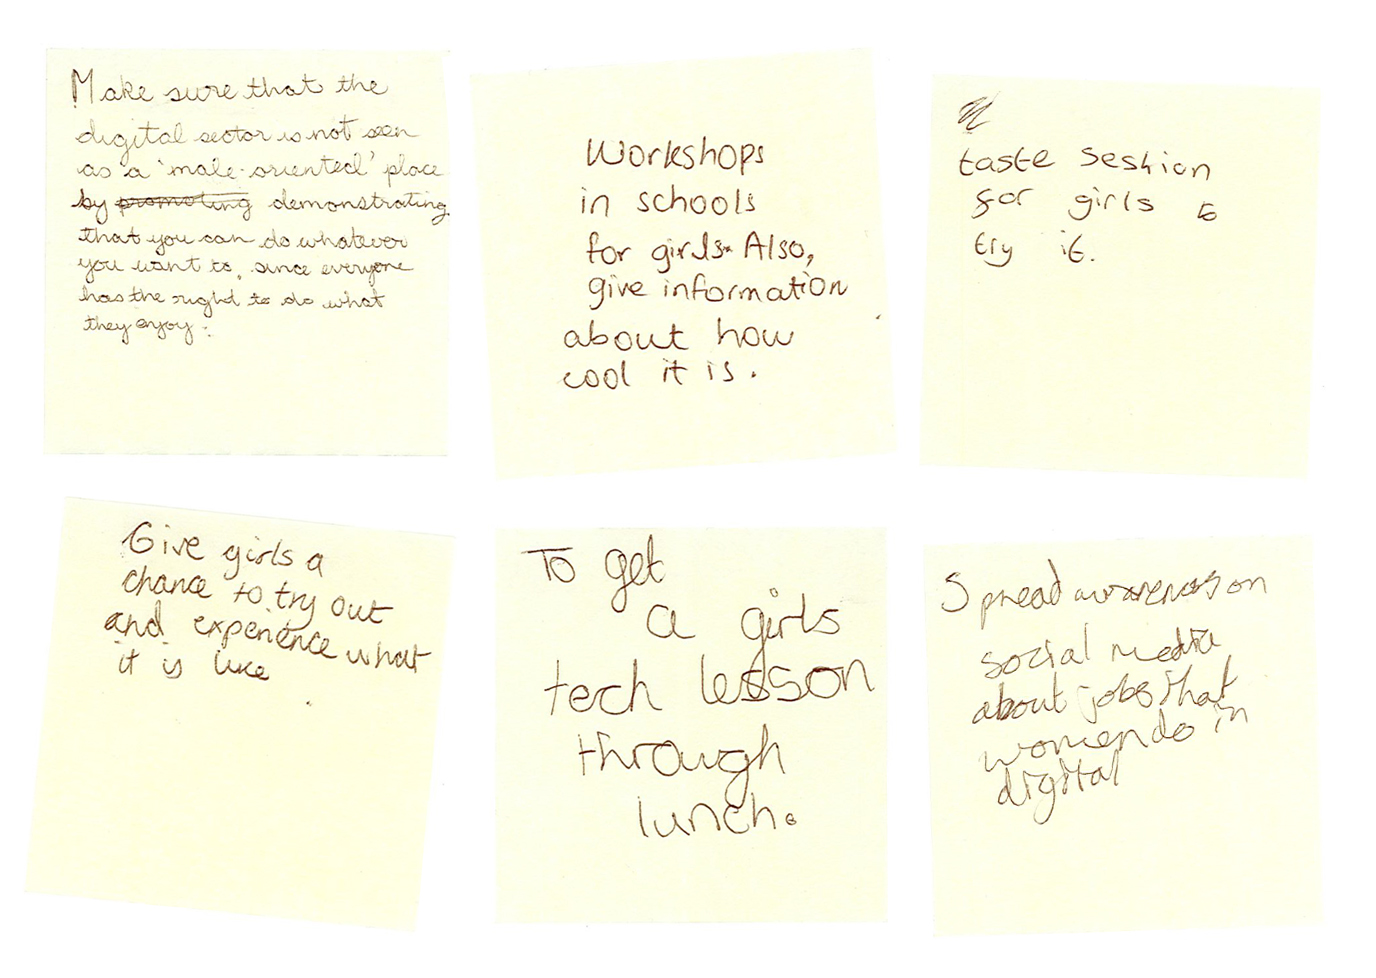 Make sure that the
digital sector is not seen
as a 'male-oriented' place
by promoting demonstrating
that you can do whatever
you want to, since everyone
has the right to do what
they enjoy.
Workshops
in schools
for girls. Also,
give information
about how
cool it is.
taste seshion
for girls to
try it.
Give girls a
chance to try out
and experience what
it is like
To get
a girls
tech lesson
through
lunch.
Spread awareness on
social media
about jobs that
women do in
digital